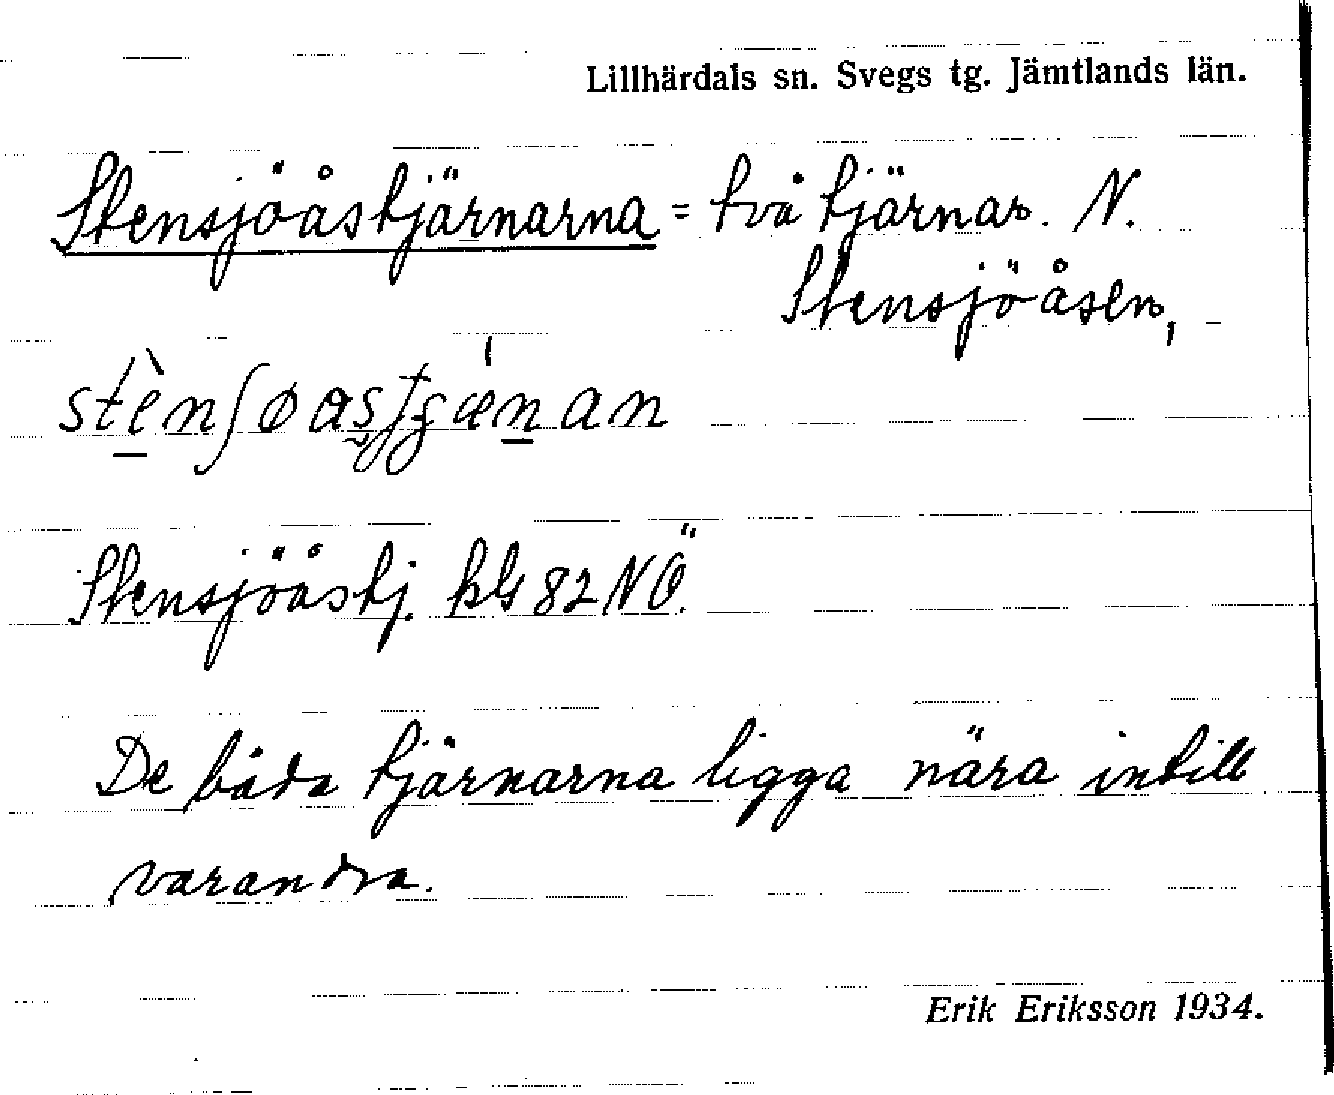 Lillhärdals sn. Svegs tg. Jämtlands län.
Stensjöåstjärnarna = två tjärnar. N.
Stensjöåsen,
Stensjöåstj. kbl 82 NÖ.
De båda tjärnarna ligga nära intill
varandra.
Erik Eriksson 1934.